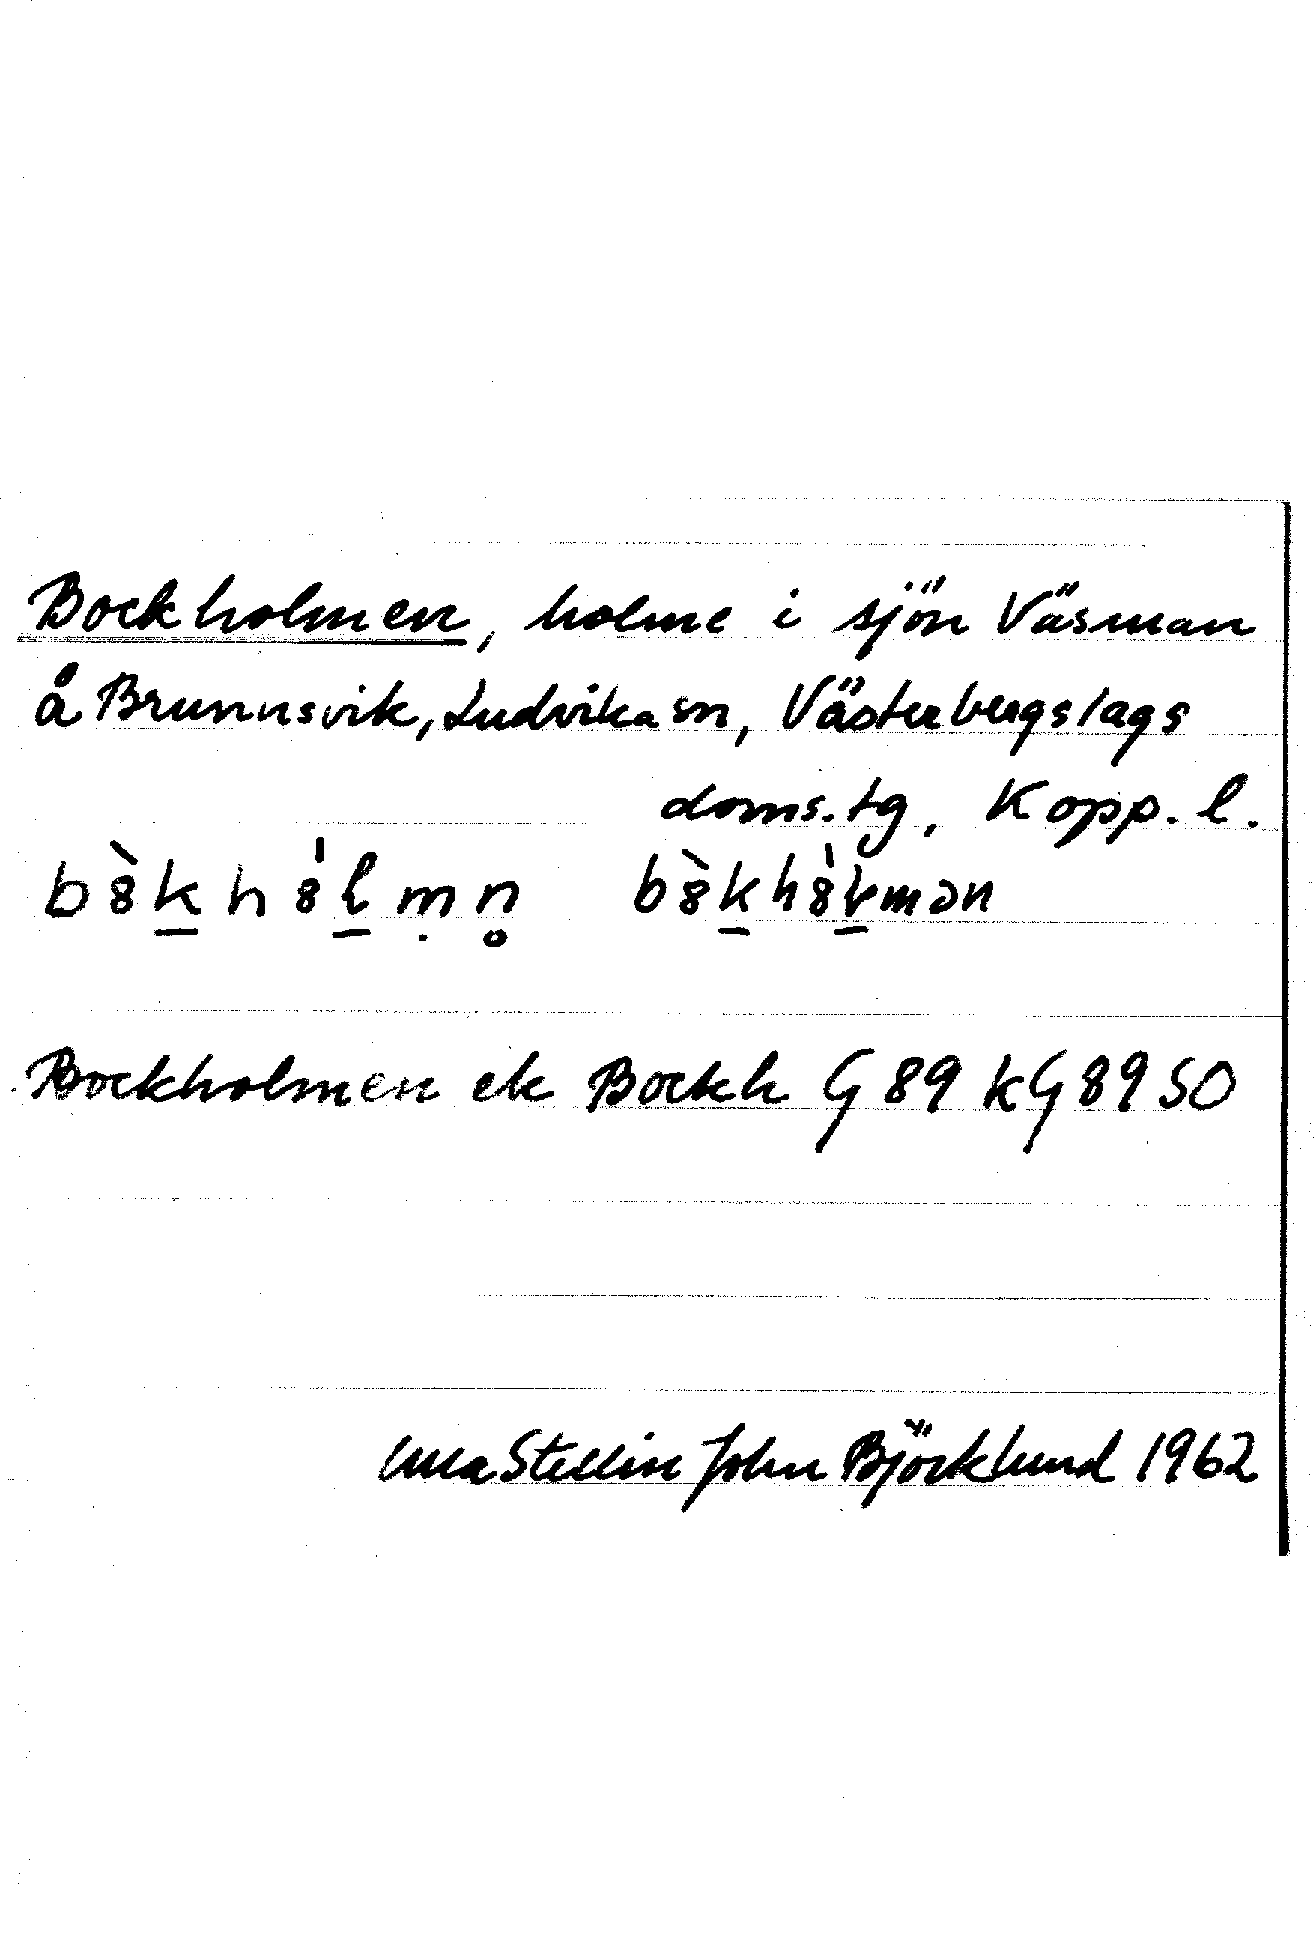 Bockholmen, holme i sjön Väsman
å Brunnsvik, Ludvika sn, Västerbergslags
doms.tg, Kopp. l.
Bockholmen ek Bockh G 89 kG 89 SO
Ulla Stellin John Björklund 1962